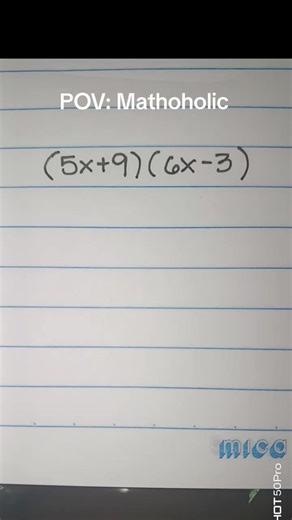 POV: Mathoholic
(5x+9)(6x-3)
mica
HOT 50Pro